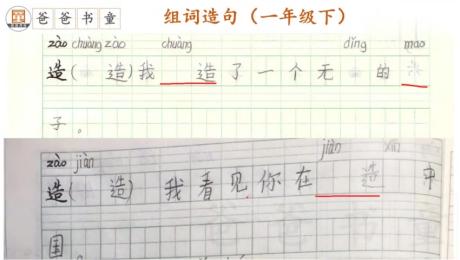 爸爸书童 组词造句（一年级下）
zào chuàng zào chuàng dǐng mao
造（ 造）我 造了一个无 的
子。
zào jiàn jiàn
造（ 造）我看见你在 造 中
国